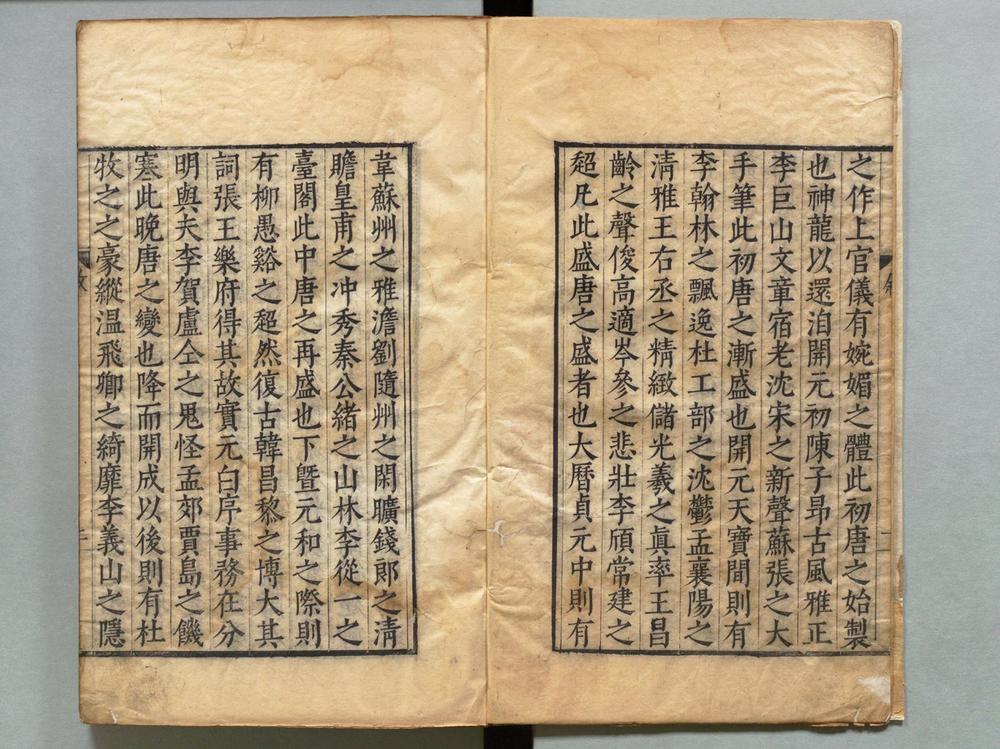 之作上官儀有婉媚之體此初唐之始製
也神龍以還洎開元初陳子昂古風雅正
李巨山文章宿老沈宋之新聲蘇張之大
手筆此初唐之漸盛也開元天寶間則有
李翰林之飄逸杜工部之沈鬱孟襄陽之
清雅王右丞之精緻儲光羲之眞率王昌
齡之聲俊高適岑參之悲壯李頎常建之
超凡此盛唐之盛者也大曆貞元中則有
韋蘇州之雅澹劉隨州之閑曠錢郎之清
贍皇甫之冲秀秦公緒之山林李從一之
臺閣此中唐之再盛也下曁元和之際則
有柳愚谿之超然復古韓昌黎之博大其
詞張王樂府得其故實元白序事務在分
明與夫李賀盧仝之鬼怪孟郊賈島之饑
寒此晚唐之變也降而開成以後則有杜
牧之之豪縱温飛卿之綺靡李義山之隱